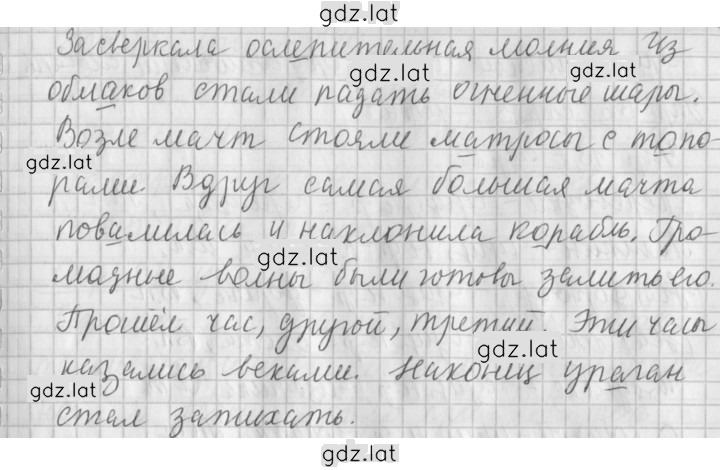 gdz.lat
Засверкала ослепительная молния Из
gdz.lat
gdz.lat
облаков стали падать огненные шары.
Возле мачт стояли матросы с топо-
gdz.lat
рами. Вдруг самая большая мачта
повалилась и наклонила корабль. Гро-
gdz.lat
мадные волны были готовы залить его.
Прошёл час, другой, третий. Эти часы
gdz.lat
казались веками. Наконец ураган
gdz.lat
стал затихать.
gdz.lat